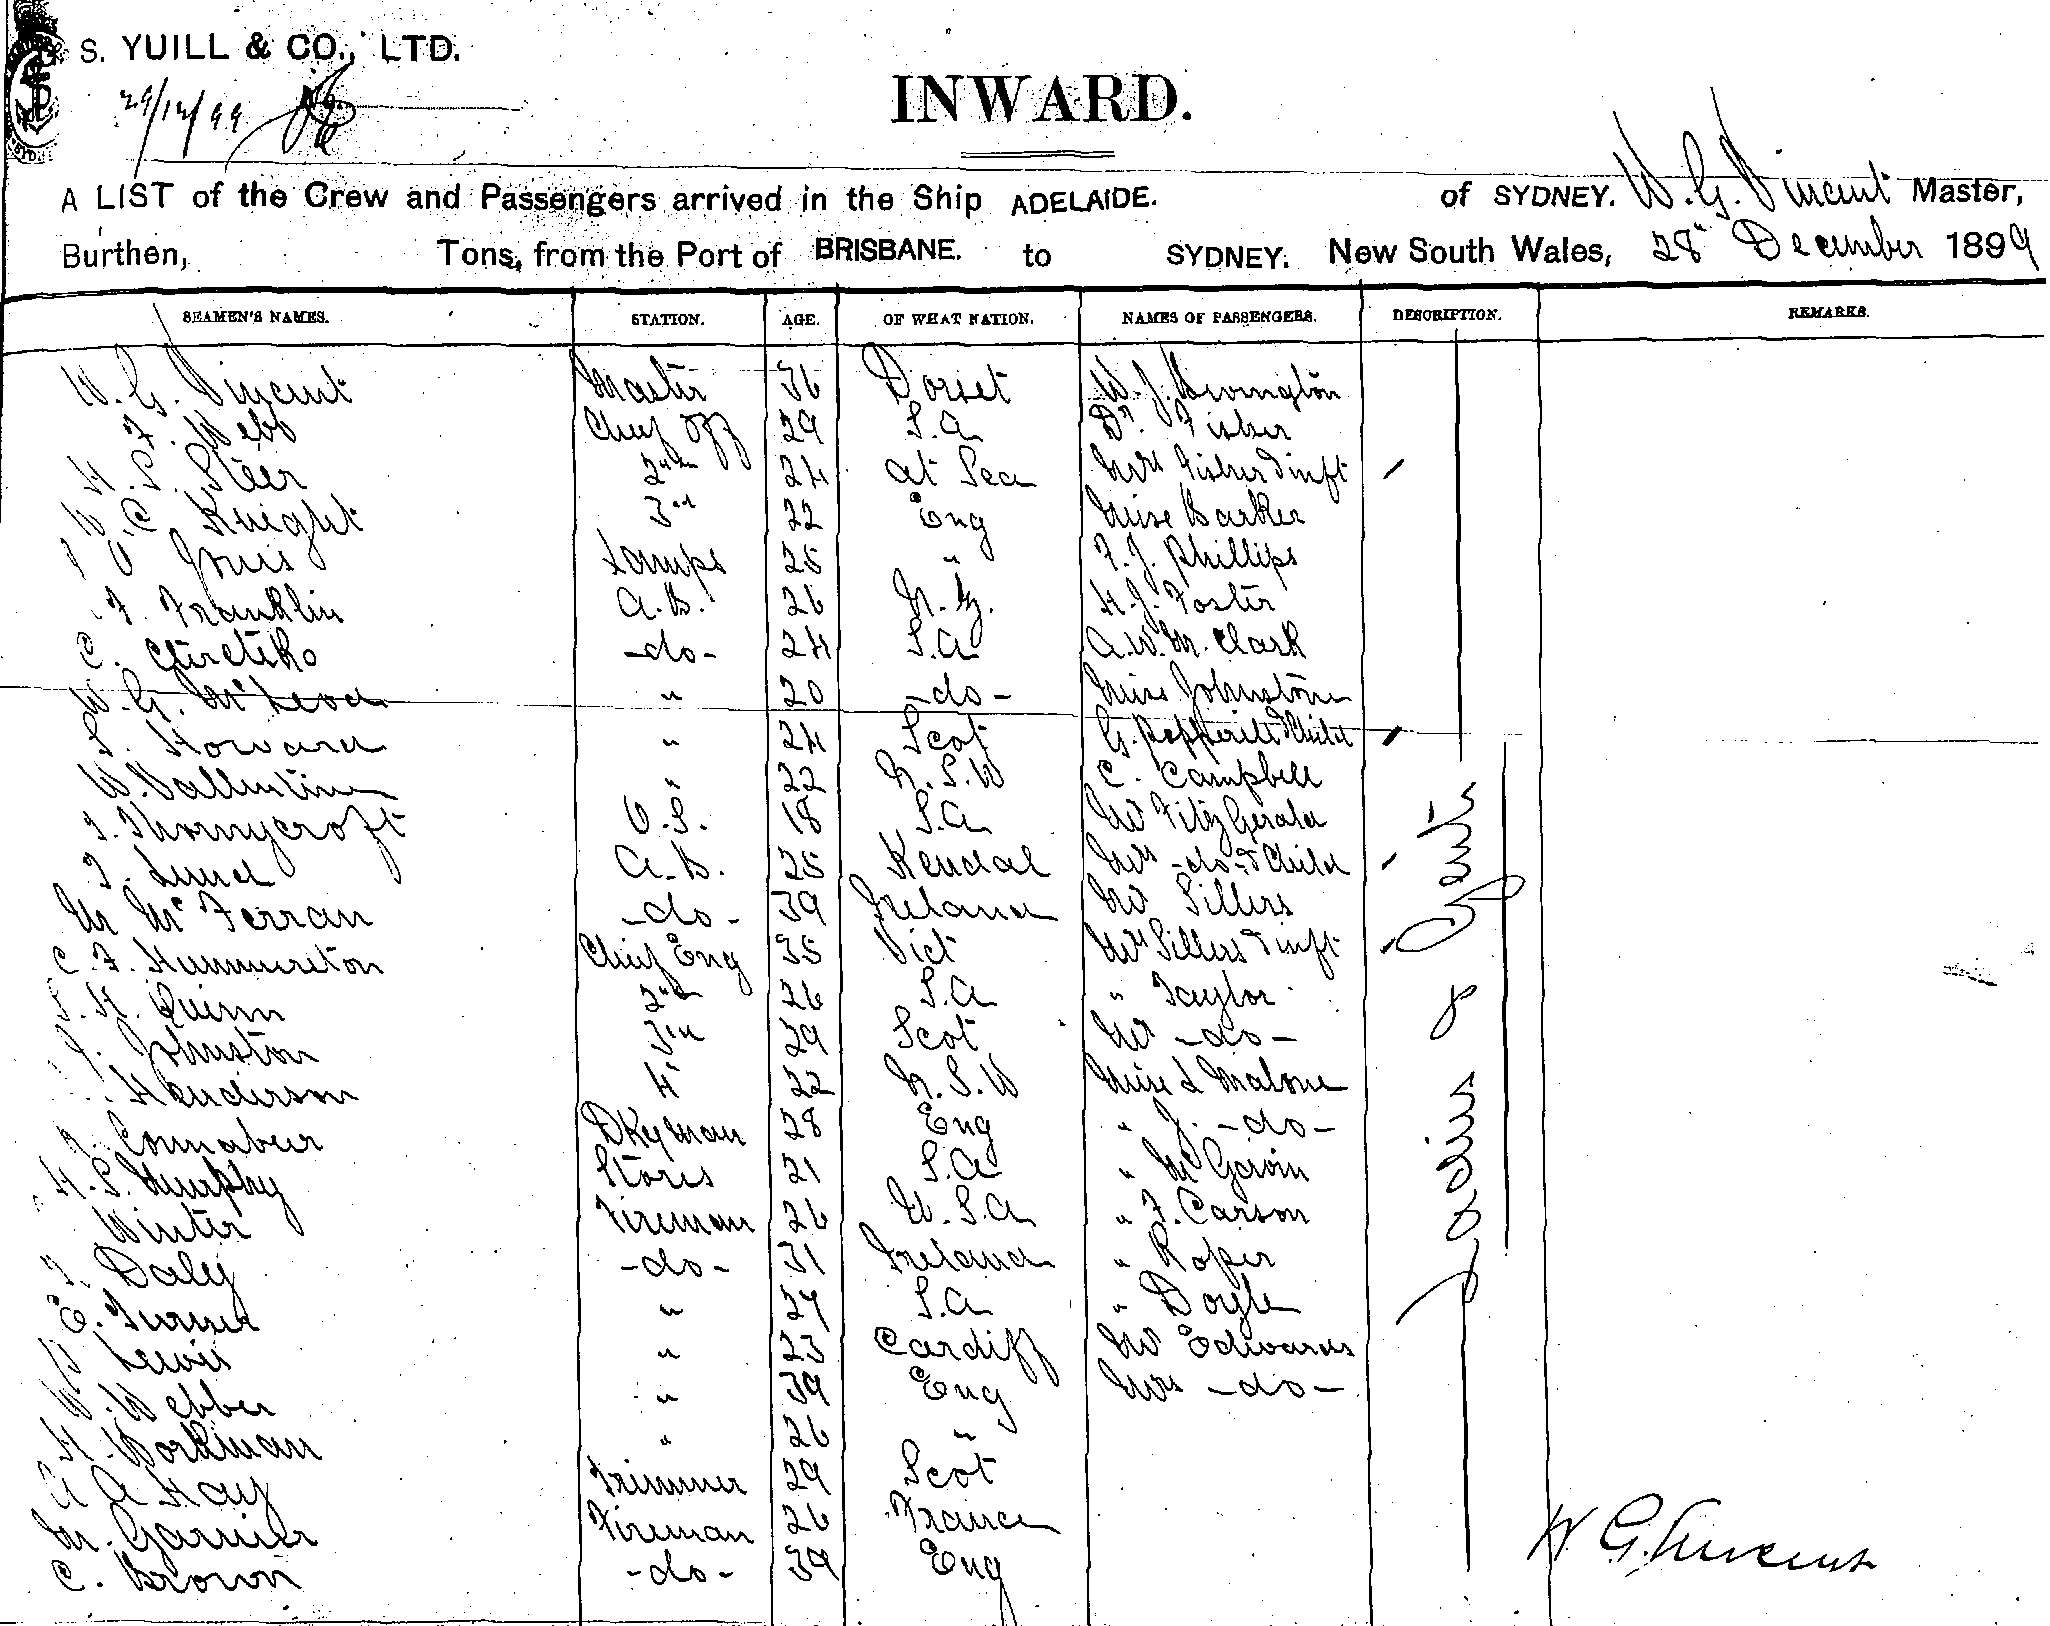 S. YUILL & CO., LTD.
29/12/99
INWARD.
A LIST of the Crew and Passengers arrived in the Ship ADELAIDE. of SYDNEY. W. G. Vincent Master,
Burthen, Tons, from the Port of BRISBANE. to SYDNEY. New South Wales, 28" December 1899
SEAMEN'S NAMES. STATION. AGE. OF WHAT NATION. NAMES OF PASSENGERS. DESCRIPTION. REMARKS.
W. G. Vincent Master 36 Dorset W. J.
F. Webb Chief Off 29 S.A Dr. Fisher
H. S. Steer 2nd 24 at Sea Mrs Fisher & inft
W. C. Knight 3rd 22 Eng Miss Barker
Jones Lamps 25 " F. J. Phillips
F. Franklin A.B. 26 N.Z. H. J. Foster
C. -do- 24 S.A A. W. M. Clark
W. G. McLeod " 20 -do- Miss Johnstone
S. Howard " 24 Scot G. Pepperill & Child
W. Ballentine " 22 N.S.W C. Campbell
T. Thornycroft O.S. 18 S.A Mr FitzGerald
T. Lund A.B. 25 Kendal Mrs -do- & Child
M McFerran -do- 39 Ireland Mr Sillers
C. F. Chief Eng 35 Vict Mrs Sillers & inft
S. H. Quinn 2nd 26 S.A " Taylor
J. Johnston 3rd 29 Scot Mr -do-
Henderson 4" 22 N.S.W Miss L Malone
J. Connabeer Dkyman 28 Eng " J. -do-
H. S. Murphy Stores 21 S.A " McGavin
Winter Fireman 26 U.S.A " F. Carson
J. Daley -do- 31 Ireland " Roper
E. Turner " 27 S.A " Doyle
W Lewis " 23 Cardiff Mr Edwards
W. Webber " 39 Eng Mrs -do-
H. Workman " 26 "
A A Hay Trimmer 29 Scot
M. Garnier Fireman 26 France
C. Brown -do- 39 Eng
Ladies & Gents
W G Vincent